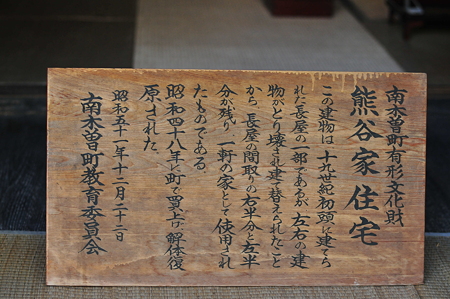 南木曽町有形文化財
熊谷家住宅
この建物は、十九世紀初頭に建てら
れた長屋の一部であるが、左右の建
物がとり壊され建て替えられたこと
から、長屋の間取りの右半分と左半
分が残り、一軒の家として使用され
たものである。
昭和四十八年に町で買上げ、解体復
原された。
昭和五十一年十二月二十二日
南木曽町教育委員会